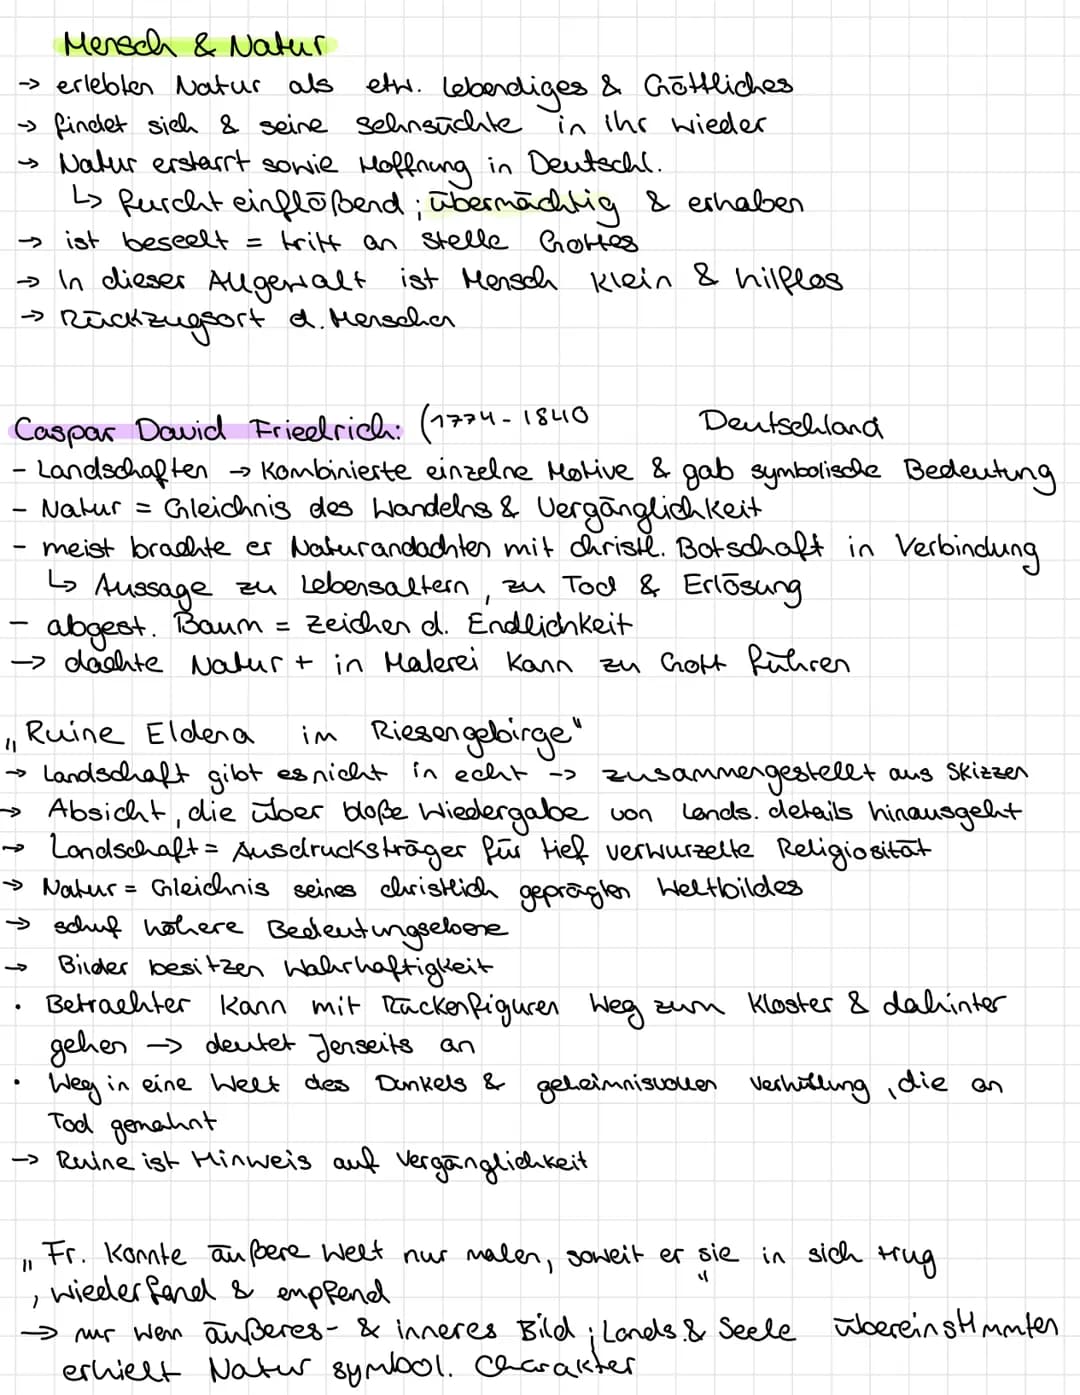 Mensch & Natur
→ erlebten Natur als etw. lebendiges & Göttliches
→ findet sich & seine Sehnsüchte in ihr wieder
→ Natur erstarrt sowie Hoffnung in Deutschl.
↳ furcht einflößend ; übermächtig & erhaben
→ ist beseelt = tritt an stelle Gottes
→ In dieser Allgewalt ist Mensch klein & hilflos
→ Rückzugsort d. Menschen
Caspar David Friedrich: (1774-1840 Deutschland
- Landschaften → kombinierte einzelne Motive & gab symbolische Bedeutung
- Natur = Gleichnis des Wandelns & Vergänglichkeit
- meist brachte er Naturandachten mit christl. Botschaft in Verbindung
↳ Aussage zu Lebensaltern, zu Tod & Erlösung
- abgest. Baum = Zeichen d. Endlichkeit
→ dachte Natur + in Malerei kann zu Gott führen
„Ruine Eldena im Riesengebirge"
→ Landschaft gibt es nicht in echt -> zusammengestellt aus Skizzen
→ Absicht, die über bloße Wiedergabe von Lands. details hinausgeht
→ Landschaft = Ausdrucksträger für tief verwurzelte Religiosität
→ Natur = Gleichnis seines christlich geprägten Weltbildes
→ schuf höhere Bedeutungsebene
→ Bilder besitzen Wahrhaftigkeit
• Betrachter kann mit Rückenfiguren Weg zum Kloster & dahinter
gehen → deutet Jenseits an
• Weg in eine Welt des Dunkels & geheimnisvollen Verhüllung, die an
Tod gemahnt
→ Ruine ist Hinweis auf Vergänglichkeit
„Fr. konnte äußere Welt nur malen, soweit er sie in sich trug
, wiederfand & empfand"
→ nur wenn äußeres- & inneres Bild ; Lands. & Seele übereinstimmten
erhielt Natur symbol. Charakter